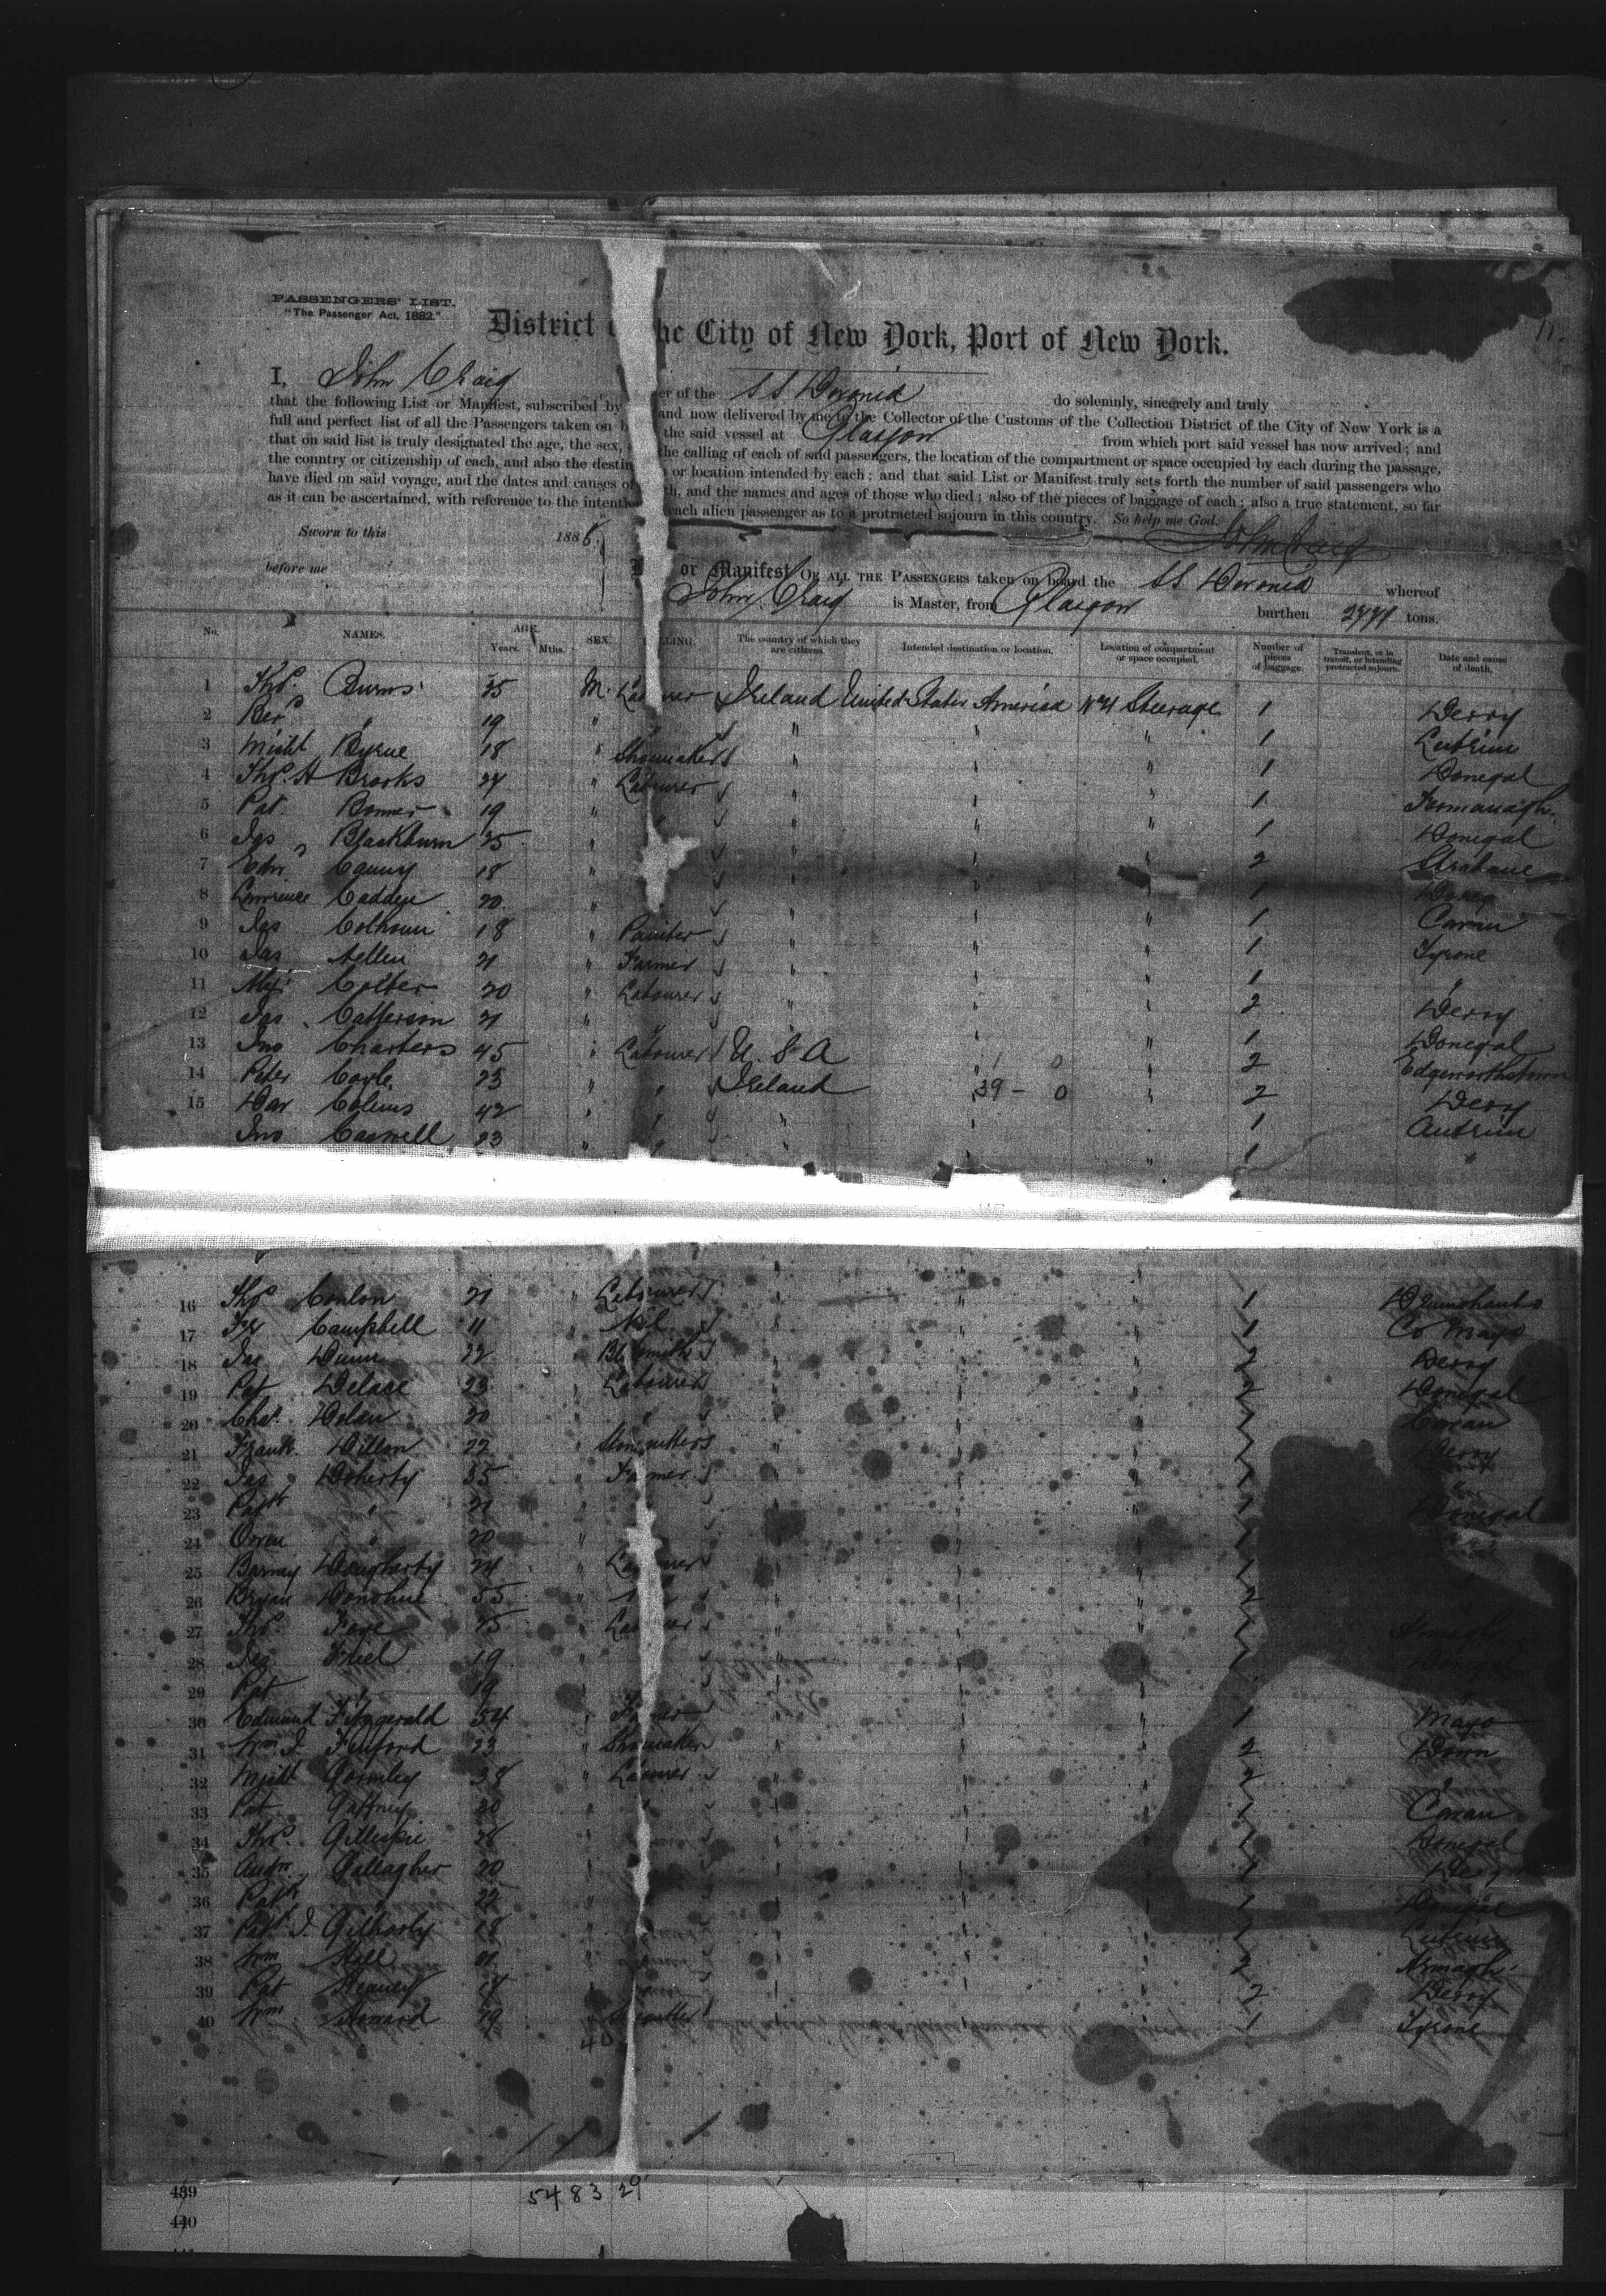 PASSENGERS' LIST.
"The Passenger Act, 1882."
District he City of New York, Port of New York.
I, John Craig er of the SS Devonia do solemnly, sincerely and truly
that the following List or Manifest, subscribed by and now delivered by me to the Collector of the Customs of the Collection District of the City of New York is a
full and perfect list of all the Passengers taken on the said vessel at Glasgow from which port said vessel has now arrived; and
that on said list is truly designated the age, the sex, the calling of each of said passengers, the location of the compartment or space occupied by each during the passage,
the country or citizenship of each, and also the destin or location intended by each; and that said List or Manifest truly sets forth the number of said passengers who
have died on said voyage, and the dates and causes of th, and the names and ages of those who died; also of the pieces of baggage of each; also a true statement, so far
as it can be ascertained, with reference to the intentio each alien passenger as to a protracted sojourn in this country. So help me God.
Sworn to this 188 John Craig
before me
or Manifest OF ALL THE PASSENGERS taken on board the SS Devonia whereof
John Craig is Master, from Glasgow burthen tons.
No. NAMES. AGE. Years. Mths. SEX. LLING. The country of which they are citizens. Intended destination or location. Location of compartment or space occupied. Number of pieces of baggage. Transient, or in transit, or intending protracted sojourn. Date and cause of death.
1 Thos. Burns 35 M. Labourer Ireland United States America No 4 Steerage 1 Derry
2 " 19 " " " " 1 Leitrim
3 Michl Byrne 18 " Shoemaker " " " 1 Donegal
4 Thos. A Brooks 24 " Labourer " " " 1 Fermanagh
5 Pat. Bonner 19 " " " " 1 Donegal
6 Jas Blackburn 25 " " " " 2 Strabane
7 18 " " " " 1 Derry
8 Lawrence Cadden 20 " " " " 1 Cavan
9 Jas Colhoun 18 " Painter " " " 1 Tyrone
10 Jas Aellen 21 " Farmer " " " 1 "
11 Alexr Colter 20 " Labourer " " " 2 Derry
12 Jas Catterson 21 " " " " 1 Donegal
13 Jno Charters 45 " Labourer U.S.A 1 0 " 2 Edgeworthstown
14 Peter Coyle 23 " " Ireland 39 - 0 " 2 Derry
15 Dan Colins 42 " " " " " 1 Antrim
Jno Caswell 23 " " " " " 1 "
16 Thos Conlon 21 " Labourer " " " 1
17 Campbell 11 " Nil " " " 1 Co Mayo
18 Jas Dunn 22 " Bl. Smith " " " 2 Derry
19 Pat Delace 23 " Labourer " " " 2 Donegal
20 Chas. Dolan 20 " " " " " 1 Cavan
21 Frank Dillon 22 " Stonecutter " " " 1 Derry
22 Jas Doherty 35 " Farmer " " " 1 "
23 Patk " 21 " " " " 1 Donegal
24 Owen " 20 " " " " 1
25 Barnay Dougherty 24 " Labourer " " " 1
26 Bryan Donohue 55 " " " " 2
27 Thos. Faye 25 " Labourer " " " 1 Armagh
28 Jas Friel 19 " " " " 1 Donegal
29 Pat " 19 " " " "
30 Edmund Fitzgerald 54 " Farmer " " " 1 Mayo
31 Wm J. Fulford 23 " Shoemaker " " " 2 Down
32 Michl Gormley 38 " Labourer " " " 2 "
33 Pat Gaffney 20 " " " " " 1 Cavan
34 Thos. Gillespie 28 " " " " 1 Donegal
35 Andw Gallagher 20 " " " " 1 Derry
36 Patk " 22 " " " " 1 Donegal
37 Patk J. 18 " " " " 1 Leitrim
38 Wm Hall 21 " " " " 2 Armagh
39 Pat Heaney " " " " 2 Derry
40 Wm Howard 19 " " 1 Tyrone
40
439 5483 29
440